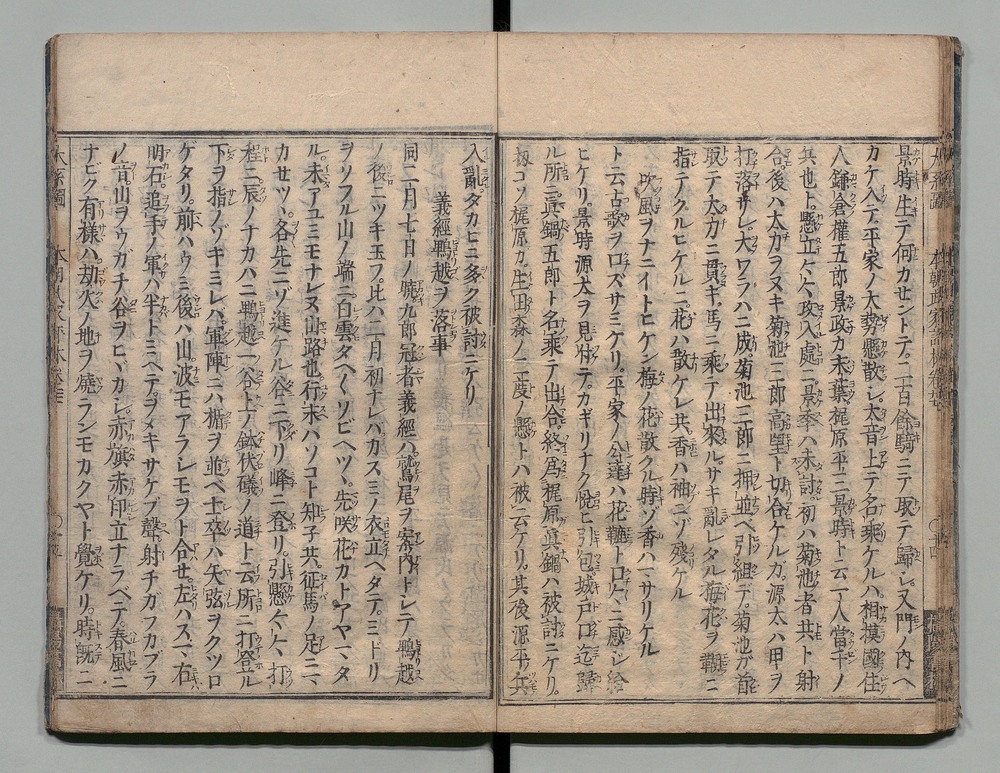 景時生テ何カセントテ。二百餘騎ニテ取テ歸シ。又門ノ內ヘ
カケ入テ。平家ノ大勢懸散シ。大音上テ名乘ケルハ。相摸國住
人鎌倉權五郎景政カ末葉梶原平三景時ト云一人當千ノ
兵也ト。懸立々々攻入處ニ。景季ハ未討。初ハ菊池者共ト射
合。後ハ太刀ヲヌキ菊池三郎高望ト切合ケルガ。源太ハ甲ヲ
打落サレ。大ワラハニ成。菊池三郎ニ押並ベ引組テ。菊池ガ首
取テ太刀ニ貫キ。馬ニ乘テ出來ル。サキ亂レタル梅花ヲ ニ
指テクルヒケルニ。花ハ散ケレ共香ハ袖ニゾ殘ケル
吹風ヲナニイトヒケン梅ノ花散クル時ゾ香ハマサリケル
ト云古歌ヲ口ズサミケリ。平家ノ公達ハ花 ト口々ニ感シ給
ヒケリ。景時源太ヲ見付テ。カギリナク悅ヒ引包。城戸口迄歸
ル所ニ。眞鍋五郎ト名乘テ出合。終爲梶原眞鍋ハ被討ニケリ。
扨コソ梶原カ生田森ノ二度ノ懸トハ被云ケリ。其後源平ノ兵
入亂。タカヒニ多ク被討ニケリ
義經鵯越ヲ落事
同二月七日ノ曉九郎冠者義經ハ。鷲尾ヲ案內トシテ鵯越
ノ後ニツキ玉フ。比ハ二月初ナレバ。カスミノ衣立ヘタテ。ミドリ
ヲソフル山ノ端ニ。白雲タヘ〱ソビヘツヽ。先咲花カトアヤマタ
ル。未アユミモナレヌ山路也。行末ハソコト知子共。征馬ノ足ニマ
カセツヽ。各先ニゾ進ケル。谷ニ下リ峰ニ登リ。引懸々々打
程ニ。辰ノナカハニ鵯越一谷ト 鉢伏礒ノ道ト云所ニ打登ル
下ヲ指ノゾキミレバ。軍陣ニハ楯ヲ並ベ士卒ハ矢弦ヲクツロ
ケタリ。前ハウミ後ハ山。波モアラシモヲト合セ。左ハスマ右
明石。追手ノ軍ハ半トミヘテ。ヲメキサケブ聲。射チガフカブラ
ノ音。山ヲウガチ谷ヲヒヾカシ。赤旗赤印立ナラベテ。春風ニ
ナビク有樣ハ。劫火ノ地ヲ燒ランモカクヤト覺ケリ。時旣ニ